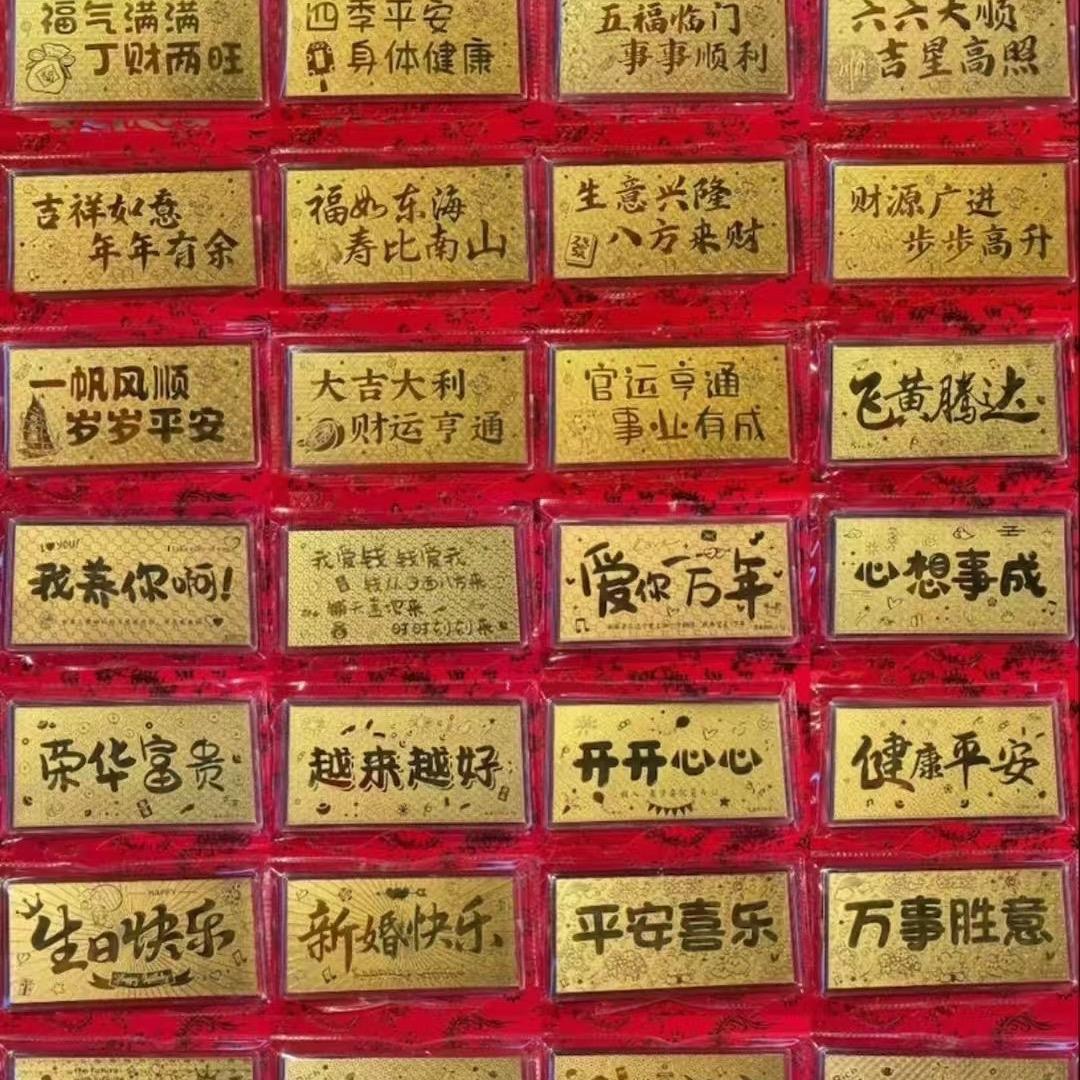 福气满满
丁财两旺
四季平安
身体健康
五福临门
事事顺利
六六大顺
吉星高照
吉祥如意
年年有余
福如东海
寿比南山
生意兴隆
發
八方来财
财源广进
步步高升
一帆风顺
岁岁平安
大吉大利
财运亨通
官运亨通
事业有成
飞黄腾达
I ♥ you!
我养你啊!
我爱钱 钱爱我
钱从四面八方来
铺天盖地来
时时刻刻来
爱你一万年
心想事成
荣华富贵
越来越好
开开心心
健康平安
HAPPY
生日快乐
Happy Birthday
新婚快乐
平安喜乐
万事胜意